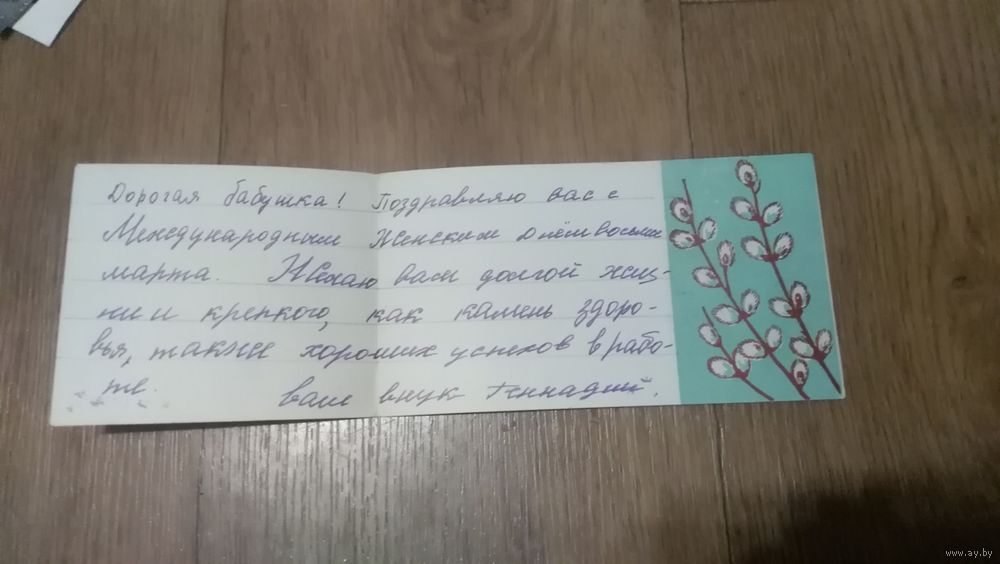 Дорогая бабушка! Поздравляю вас с
Международным Женским Днём восьмое
марта. Желаю вам долгой жиз-
ни и крепкого, как камень здоро-
вья, также хороших успехов в рабо-
те. ваш внук Геннадий.
www.ay.by